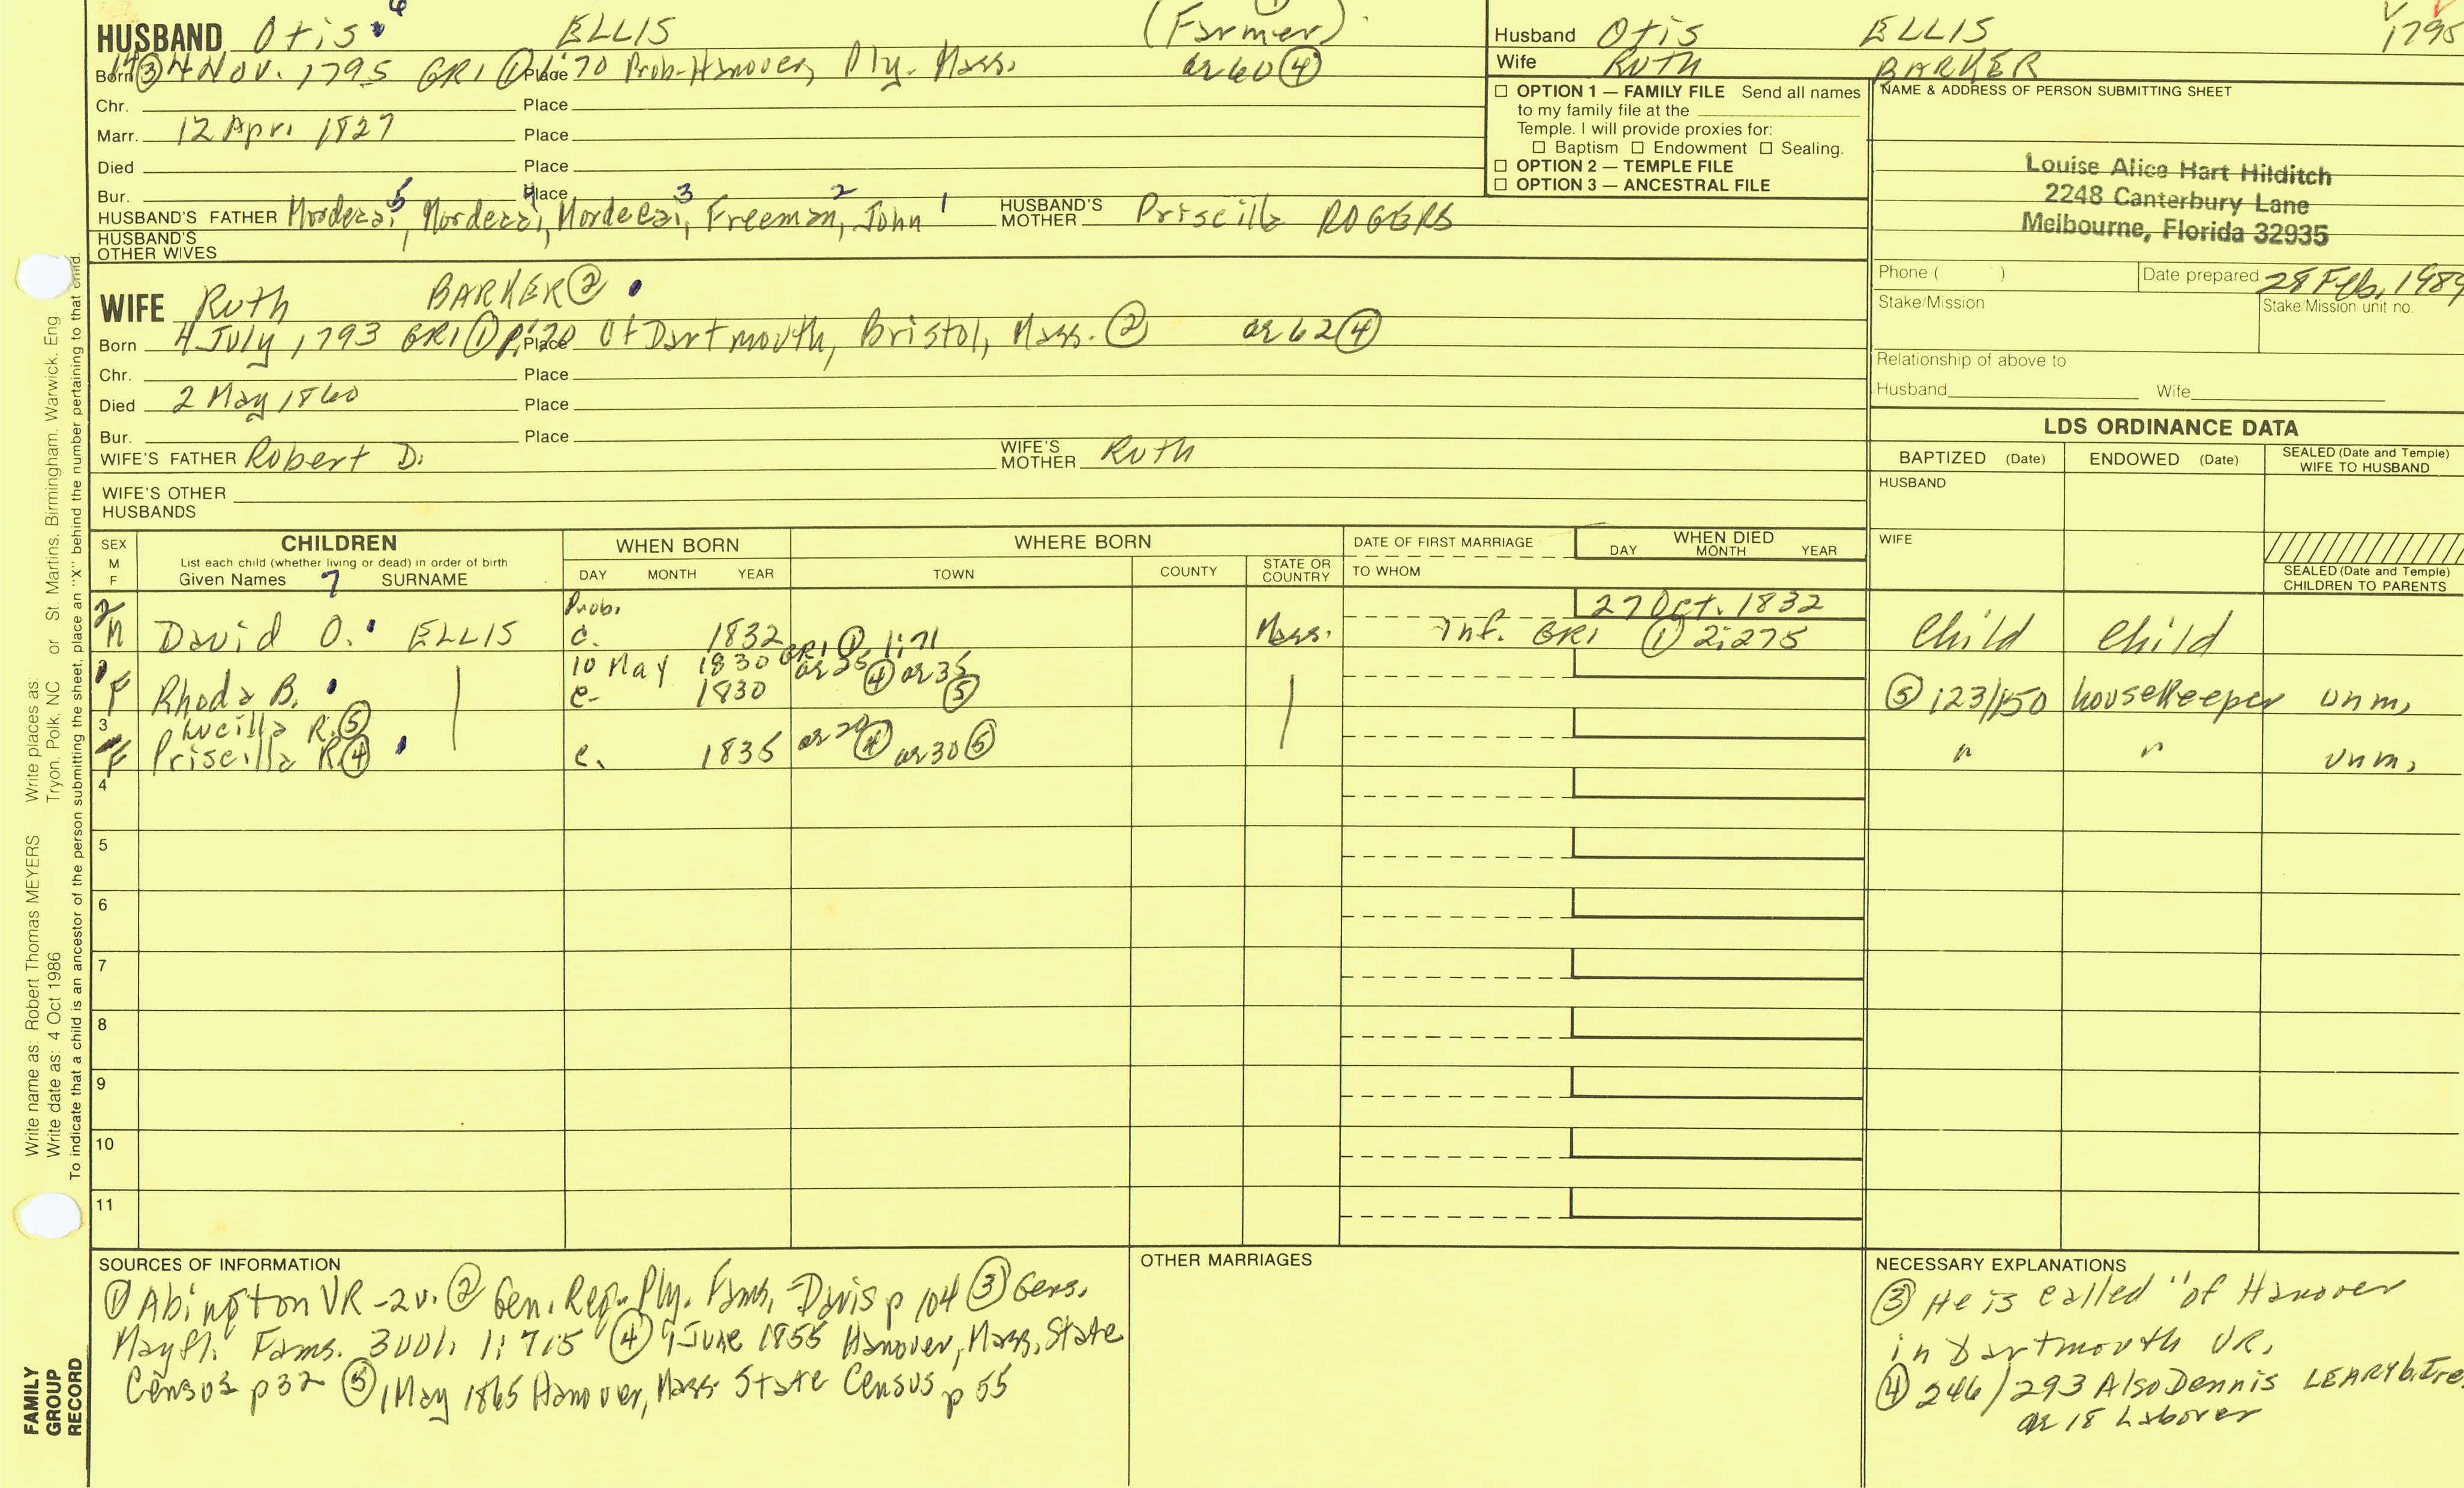 HUSBAND Otis 6 ELLIS (Farmer)
Born 14 ③ 4 Nov. 1795 GRI ① 1:70 Place Prob. Hanover, Ply. Mass. ae 60 ④
Chr. Place
Marr. 12 Apr. 1827 Place
Died Place
Bur. Place
HUSBAND'S FATHER Mordecai 5, Mordecai 4, Mordecai 3, Freeman 2, John 1 HUSBAND'S MOTHER Priscilla ROGERS
HUSBAND'S OTHER WIVES
WIFE Ruth BARKER ②
Born 4 July 1793 GRI ① 1:70 Place Of Dartmouth, Bristol, Mass. ② ae 62 ④
Chr. Place
Died 2 May 1860 Place
Bur. Place
WIFE'S FATHER Robert D. WIFE'S MOTHER Ruth
WIFE'S OTHER HUSBANDS
Husband Otis ELLIS 1795
Wife Ruth BARKER
☐ OPTION 1 — FAMILY FILE Send all names
to my family file at the
Temple. I will provide proxies for:
☐ Baptism ☐ Endowment ☐ Sealing.
☐ OPTION 2 — TEMPLE FILE
☐ OPTION 3 — ANCESTRAL FILE
NAME & ADDRESS OF PERSON SUBMITTING SHEET
Louise Alice Hart Hilditch
2248 Canterbury Lane
Melbourne, Florida 32935
Phone ( ) Date prepared 28 Feb. 1989
Stake/Mission Stake/Mission unit no.
Relationship of above to
Husband Wife
LDS ORDINANCE DATA
BAPTIZED (Date) ENDOWED (Date) SEALED (Date and Temple) WIFE TO HUSBAND
HUSBAND
WIFE
SEALED (Date and Temple) CHILDREN TO PARENTS
SEX M F CHILDREN WHEN BORN WHERE BORN DATE OF FIRST MARRIAGE WHEN DIED
List each child (whether living or dead) in order of birth
Given Names 7 SURNAME DAY MONTH YEAR TOWN COUNTY STATE OR COUNTRY TO WHOM DAY MONTH YEAR
2 M David O. ELLIS Prob. c. 1832 Mass. 27 Oct. 1832 Inf. GRI ① 2:275 Child Child
F Rhoda B. 10 May 1830 GRI ① 1:71 c. 1830 ae 25 ④ ae 35 ⑤ ⑤ 123/150 housekeeper unm.
3 Lucilla R. ⑤
F Priscilla R. ④ c. 1835 ae 20 ④ ae 30 ⑤ " " unm.
4
5
6
7
8
9
10
11
SOURCES OF INFORMATION
① Abington VR - 2v. ② Gen. Reg. Ply. Fams, Davis p 104 ③ Gens.
Mayfl. Fams. 3vol. 1:715 ④ 9 June 1855 Hanover, Mass. State
Census p 32 ⑤ 1 May 1865 Hanover, Mass. State Census p 55
OTHER MARRIAGES
NECESSARY EXPLANATIONS
③ He is called "of Hanover
in Dartmouth VR.
④ 246/293 Also Dennis LEARY b. Ire.
ae 18 Laborer
Write name as: Robert Thomas MEYERS Write places as: Tryon, Polk, NC or St. Martins, Birmingham, Warwick, Eng
Write date as: 4 Oct 1986
To indicate that a child is an ancestor of the person submitting the sheet, place an "X" behind the number pertaining to that child.
FAMILY
GROUP
RECORD